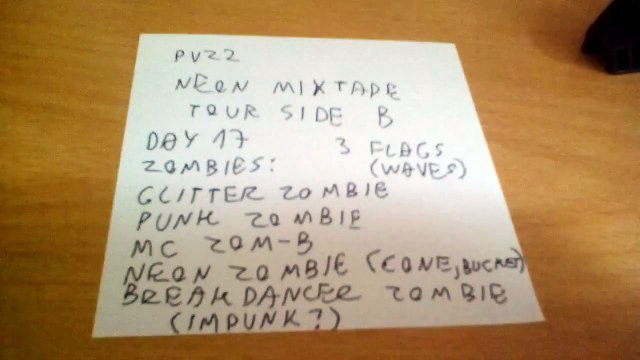 PVZ2
NEON MIXTAPE
TOUR SIDE B
DAY 17 3 FLAGS
ZOMBIES: (WAVES)
GLITTER ZOMBIE
PUNK ZOMBIE
MC ZOM-B
NEON ZOMBIE (CONE, BUCKET)
BREAKDANCER ZOMBIE
(IMPUNK?)